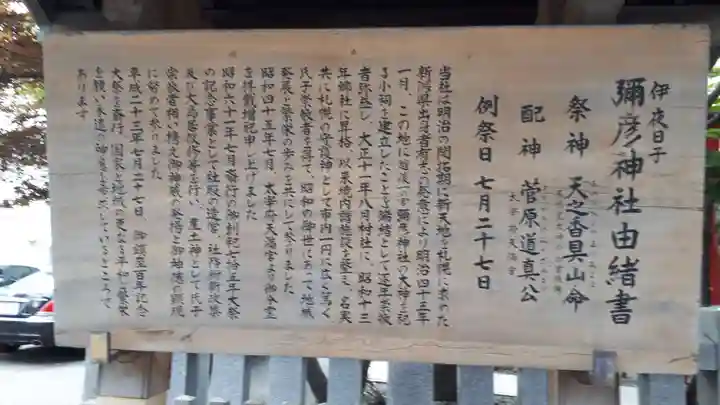 伊夜日子
彌彦神社由緒書
祭神 天之香具山命
配神 菅原道真公
太宰府天満宮
例祭日 七月二十七日
当社は明治の開拓期に新天地を札幌に求めた
新潟県出身者有志の発意により明治四十五年
一月、この地に越後一の宮彌彦神社の大神を祀
る小祠を建立したことを
者弥益し、大正十一年八月村社に、昭和十三
年郷社に昇格、以来境内諸施設を整え、名実
共に札幌の守護神として市内一円に広く篤く
氏子崇敬者を得て、昭和の御世にあって地域
発展と繁栄の歩みを共にして参りました
昭和四十五年七月、太宰府天満宮より御分霊
を拝戴増祀申し上げました
昭和六十一年七月斎行の御創祀七十五年大祭
の記念事業として社殿の造営、社務所新改築
及び大鳥居改修等を行い、産土神として氏子
宗敬者相い携え御神域の整備と御神徳の顕現
に努めて参りました
平成二十三年七月二十七日、御鎮座百年記念
大祭を斎行、国家と地域の更なる平和と繁栄
を願い永遠の
あります